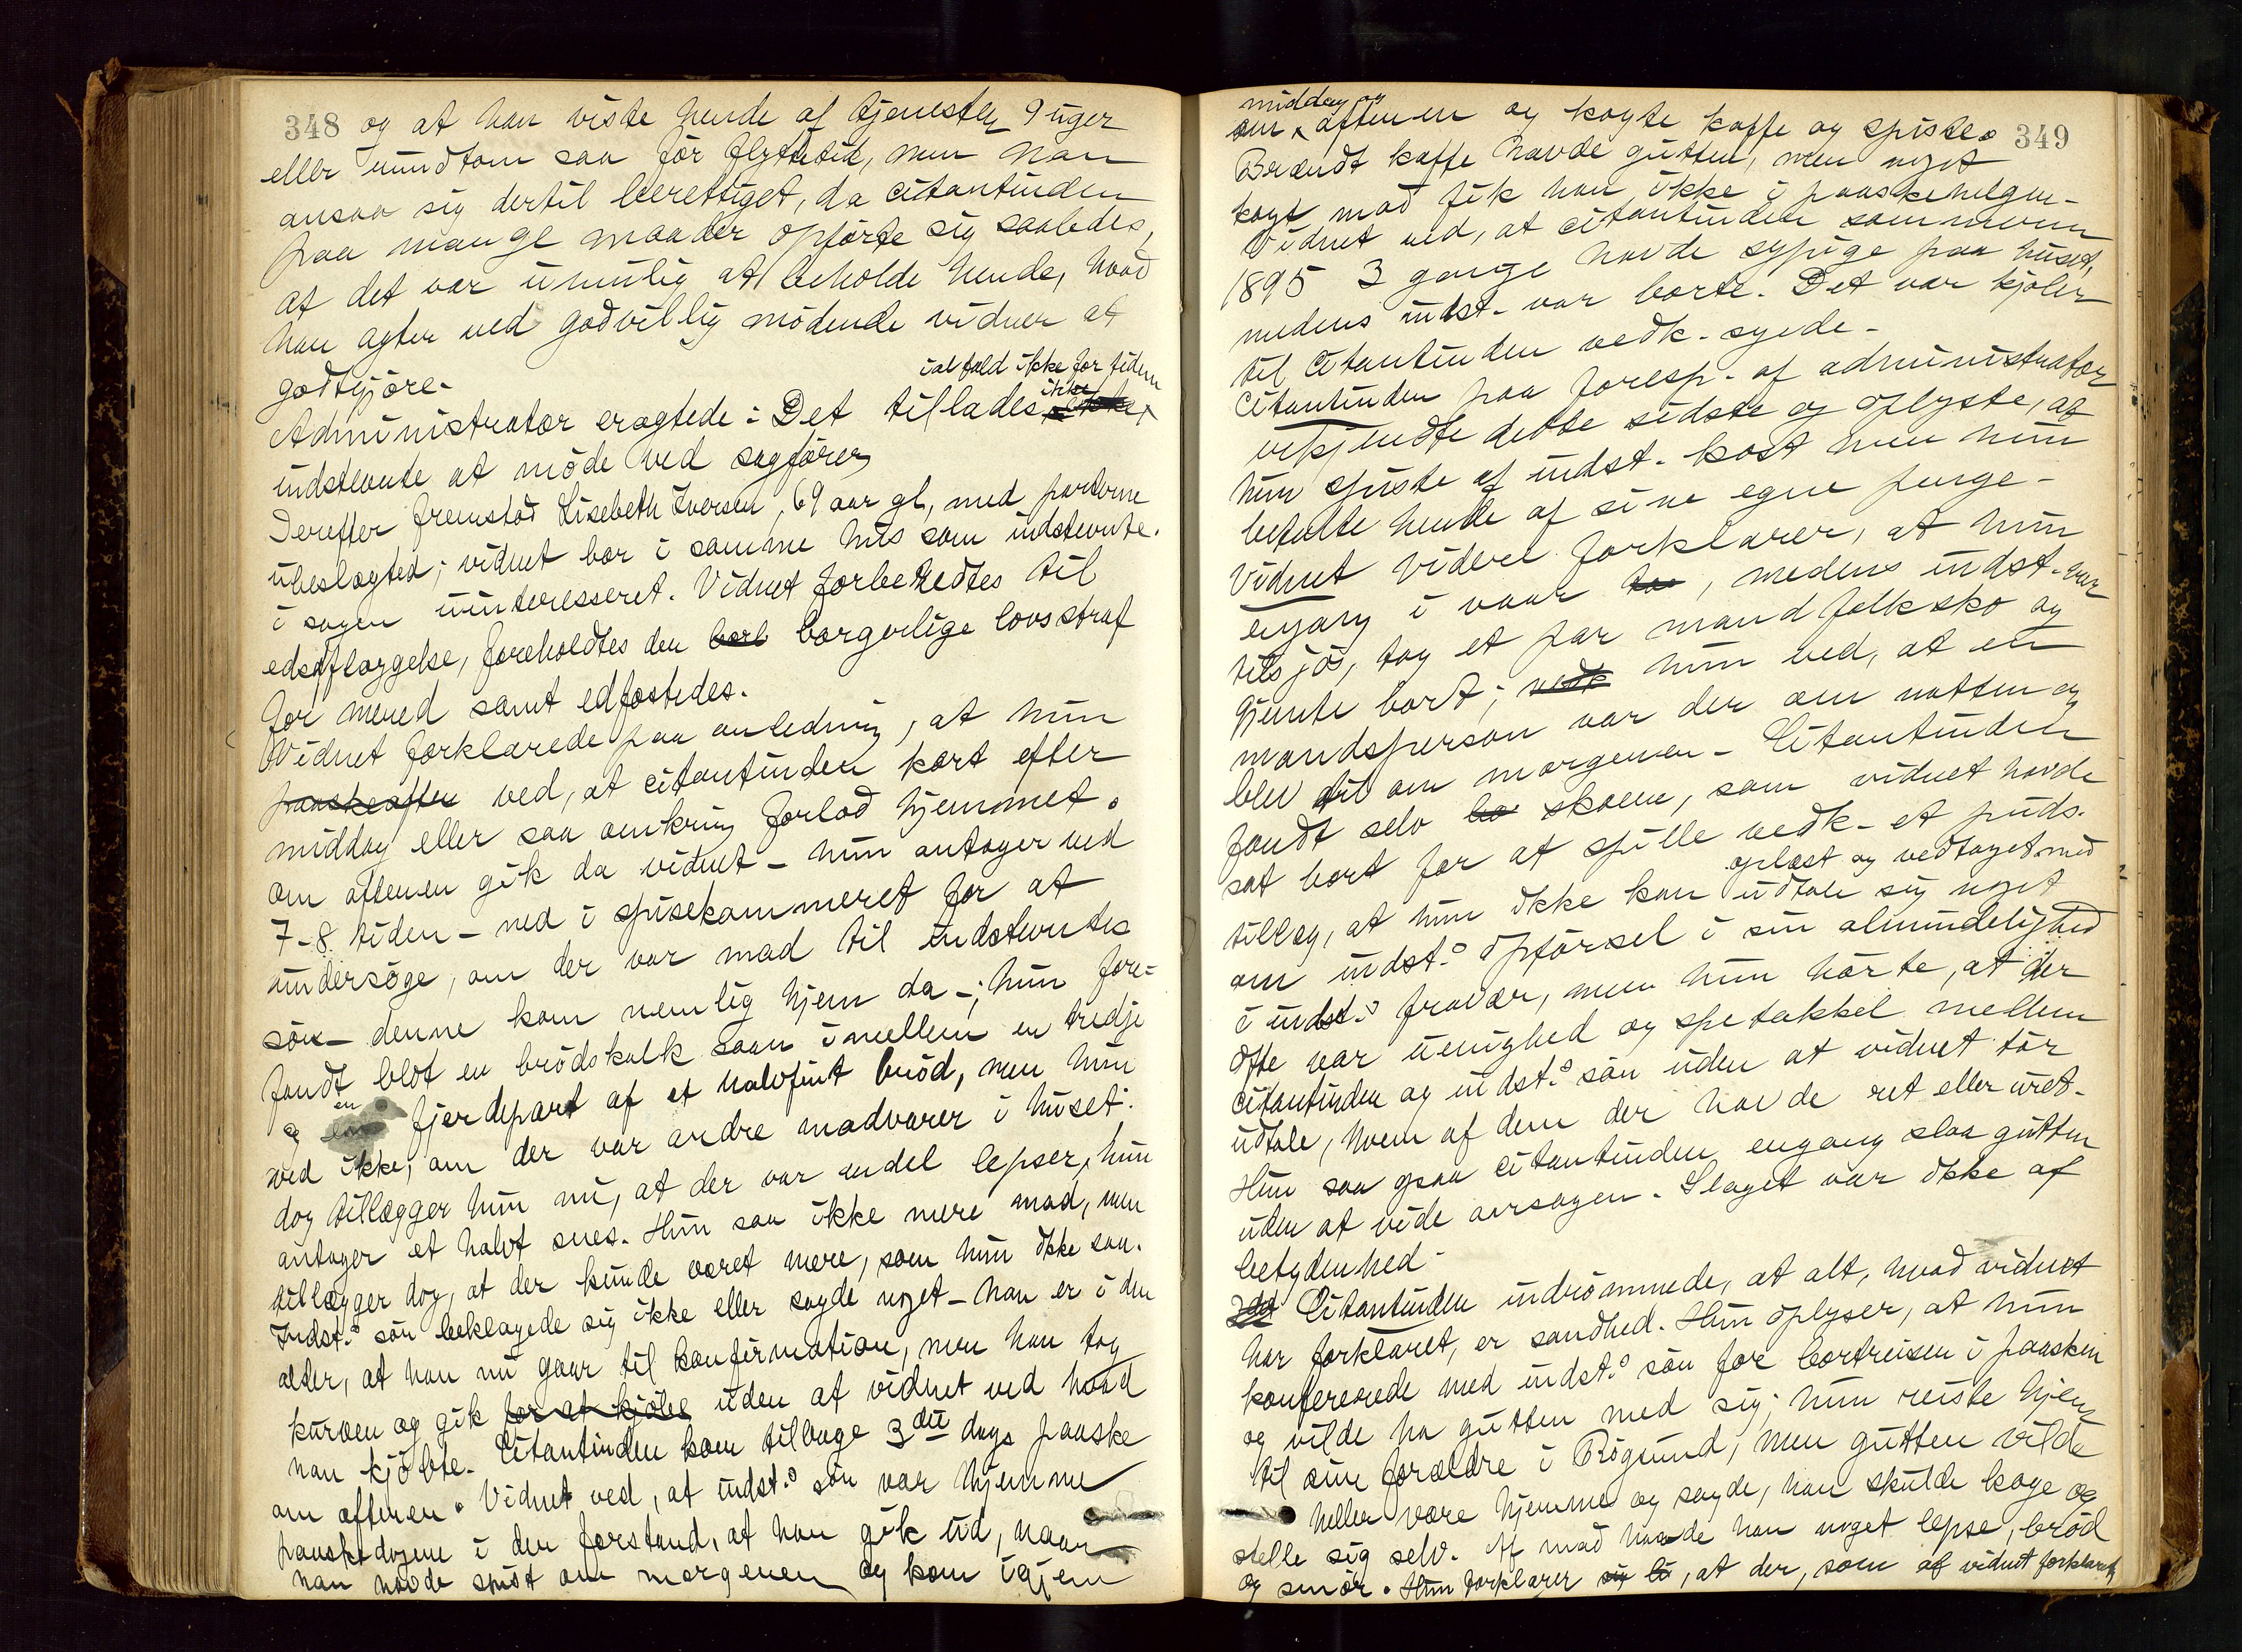 348 og at han viste hende af tjenesten 9 uger
eller rundtom saa för flyttetid, men han
ansaa sig dertil berettiget, da citantinden
paa mange maader opförte sig saaledes,
at det var umulig at beholde hende, hvad
han agter ved godvillig mödende vidner at
godtgjöre.
ialfald ikke for tiden
Administrator eragtede: Det tillades ikke
indstevnte at möde ved sagförer
Derefter fremstod Lisebeth Iversen, 69 aar gl, med parterne
ubeslægted; vidnet bor i samme hus som indstevnte.
i sagen uinteresseret. Vidnet forberedtes til
edsaflæggelse, foreholdtes den borl borgerlige lovs straf
for mened samt edfæstedes.
Vidnet forklarede paa anledning, at hun
paaskeaften ved, at citantinden kort efter
middag eller saa omkring forlod hjemmet.
om aftenen gik da vidnet - hun antager ved
7-8 tiden - ned i spisekammeret for at
undersöge, om der var mad til indstevntes
sön - denne kom nemlig hjem da -; hun fore=
fandt blot en brödskalk saan imellem en tredje
og en fjerdepart af et halvfint bröd, men hun
ved ikke, om der var andre madvarer i huset;
dog tillægger hun nu, at der var endel lepser, hun
antager et halvt snes. Hun saa ikke mere mad, men
tillægger dog, at der kunde været mere, som hun ikke saa.
Indst.s sön beklagede sig ikke eller sagde noget - han er i den
alder, at han nu gaar til konfirmation, men han tog
kurven og gik for at kjöbe uden at vidnet ved hvad
han kjöbte. Citantinden kom tilbage 3die dags paaske
om aftenen. Vidnet ved, at indst.s sön var hjemme
paaskedagene i den forstand, at han gik ud, naar
han havde spist om morgenen og kom igjen
middag og
om aftenen og kogte kaffe og spiste. 349
Brændt kaffe havde gutten, men noget
kogt mad fik han ikke i paaskehelgen -
Vidnet ved, at citantinden sommeren
1895 3 gange havde sypige paa huset,
medens indst. var borte. Det var kjoler
til citantinden vedk. syede -
Citantinden paa foresp. af administrator
vedkjendte dette sidste og oplyste, at
hun spiste af indst. kost men hun
betalte hende af sine egne penge -
Vidnet videre forklarer, at hun
engang i vaar, medens indst. var
tilsjös, tog et par mandfolksko og
gjemte bort; vedk hun ved, at en
mandsperson var der om natten og
blev til om morgenen - Citantinden
fandt selv skoene, som vidnet havde
sat bort for at spille vedk. et puds.
oplæst og vedtaget med
tillæg, at hun ikke kan udtale sig noget
om indst.s opförsel i sin almindelighed
i indst.s fravær, men hun hörte, at der
ofte var uenighed og spetakkel mellem
citantinden og indst.s sön uden at vidnet tör
udtale, hvem af dem der havde ret eller uret.
Hun saa ogsaa citantinden engang slaa gutten
uden at vide aarsagen. Slaget var ikke af
betydenhed -
Citantinden indrömmede, at alt, hvad vidnet
har forklaret, er sandhed. Hun oplyser, at hun
konfererede med indst.s sön för bortreisen i paasken
og vilde ha gutten med sig; hun reiste hjem
til sine forældre i Rögsund, men gutten vilde
heller være hjemme og sagde, han skulde koge og
stelle sig selv. Af mad havde han noget lepse, bröd
og smör. Hun forklarer, at der, som af vidnet forklaret,